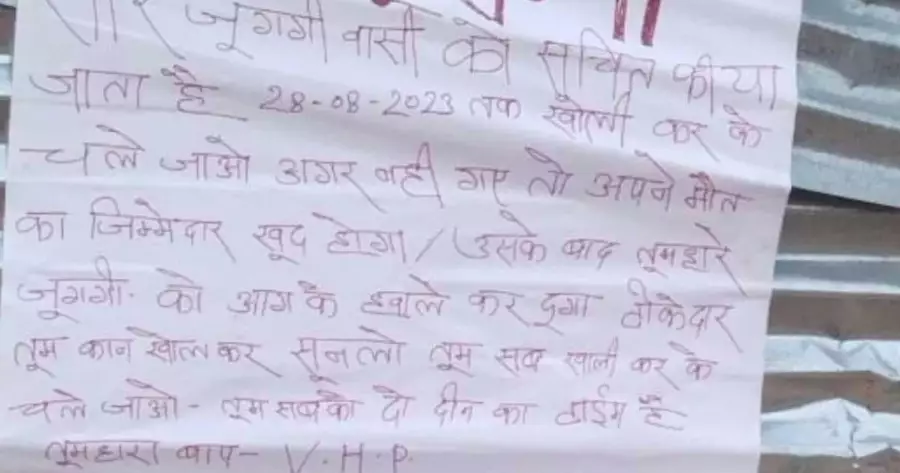 सारे जूगगी वासी को सुचित कीया
जाता है 28-08-2023 तक खाली कर के
चले जाओ अगर नही गए तो अपने मौत
का जिम्मेदार खूद होगा / उसके बाद तूमहारे
जूगगी. को आग के हवाले कर दूगा ठीकेदार
तूम कान खोल कर सूनलो तूम सब खाली कर के
चले जाओ - तूम सबको दो दीन का टाईम है
तूमहारा बाप - V.H.P.